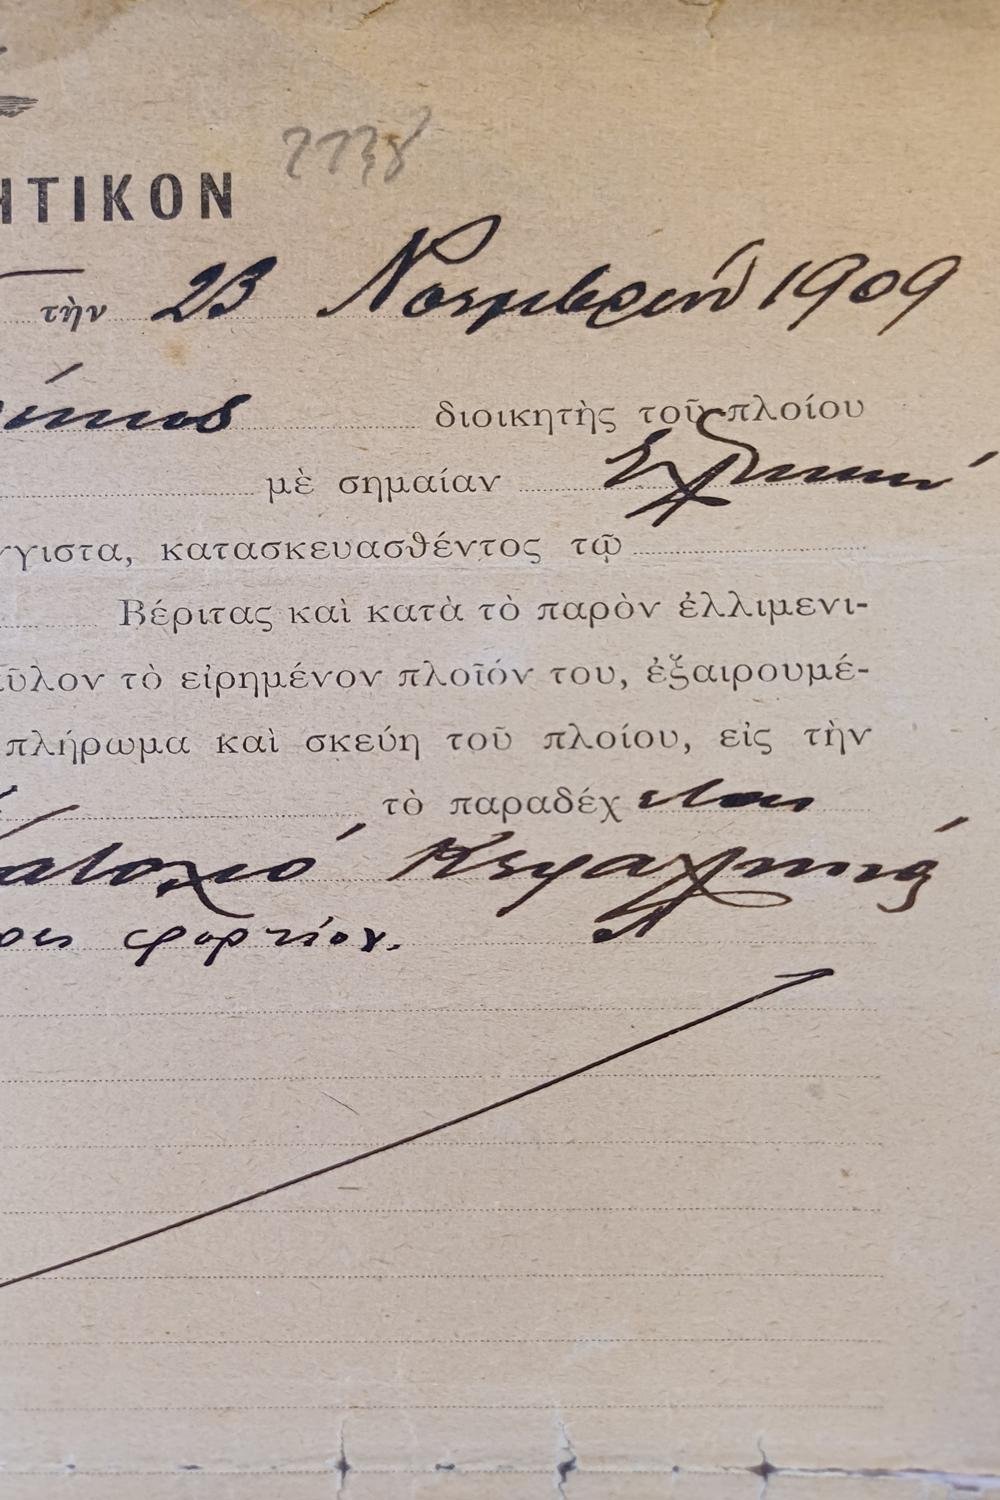 ΗΤΙΚΟΝ
τὴν 23 Νοεμβρίου 1909
διοικητὴς τοῦ πλοίου
μὲ σημαίαν Ἑλληνικήν
γγιστα, κατασκευασθέντος τῷ
Βέριτας καὶ κατὰ τὸ παρὸν ἐλλιμενι-
ῦλον τὸ εἰρημένον πλοῖόν του, ἐξαιρουμέ-
πλήρωμα καὶ σκεύη τοῦ πλοίου, εἰς τὴν
τὸ παραδέχεται
φορτίου.